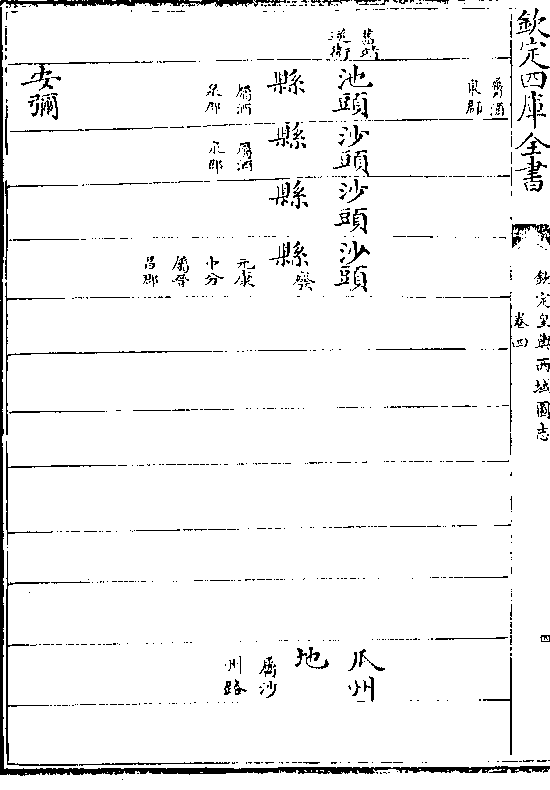 欽定四庫全書
欽定皇輿西域圖志
卷四
四
舊靖
逆衛
屬酒
泉郡
池頭
縣
屬酒
泉郡
安彌
沙頭
縣
屬酒
泉郡
沙頭
縣
沙頭
縣
元康
中分
屬晉
昌郡
瓜州
地
屬沙
州路